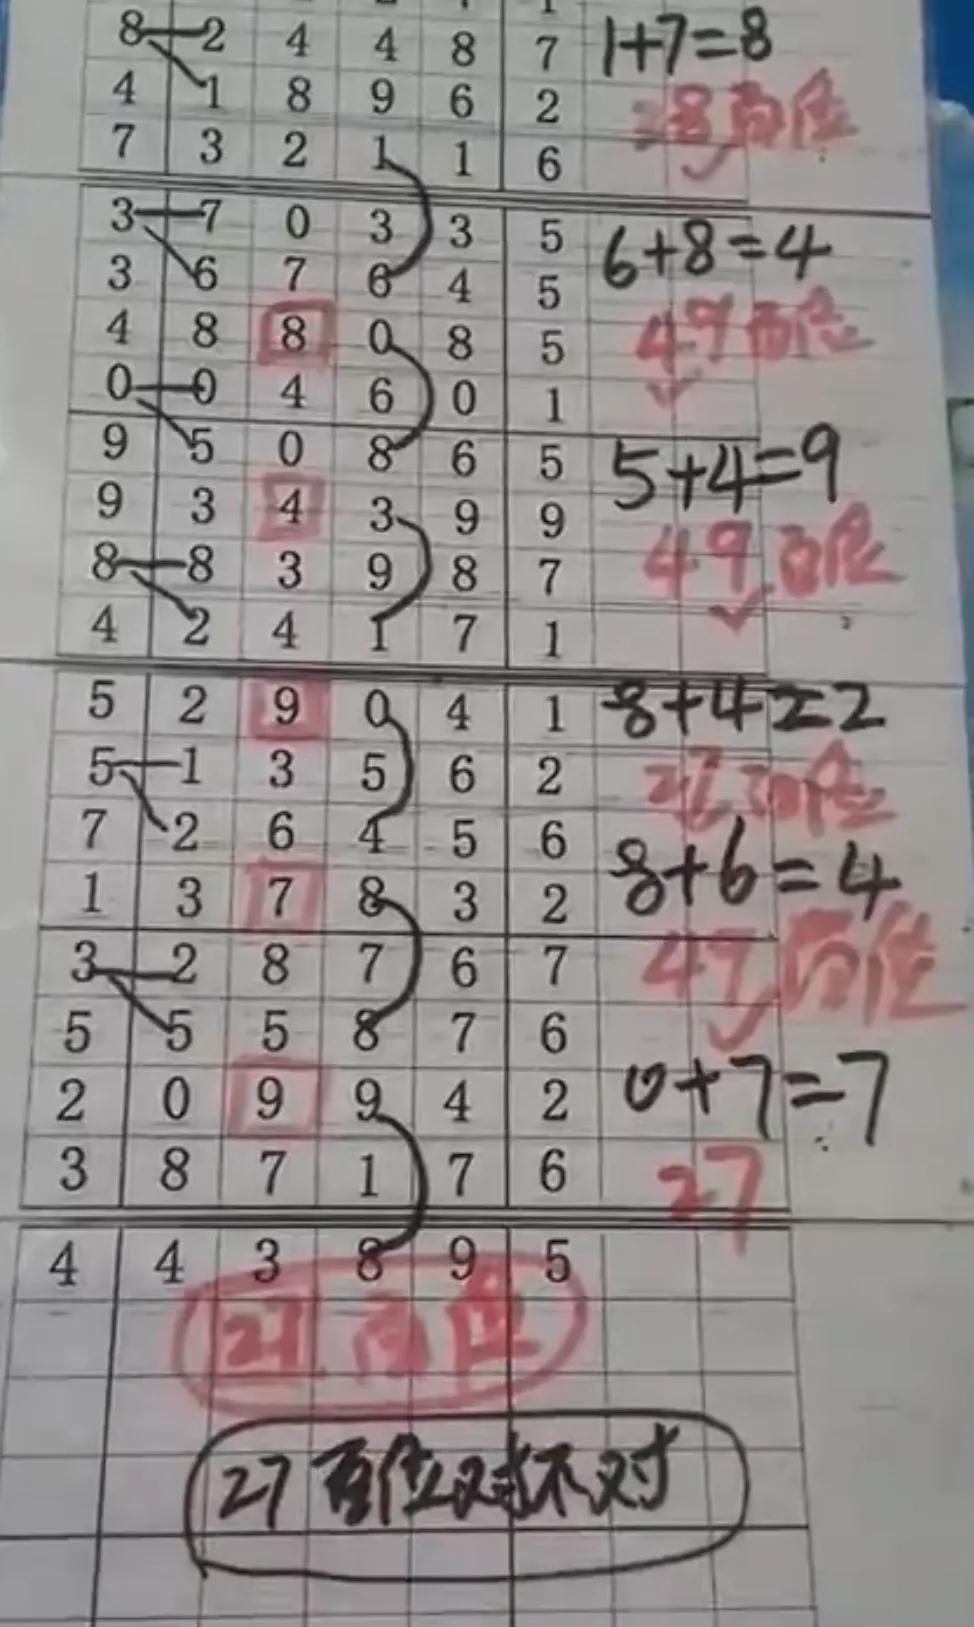 8 2 4 4 8 7 1+7=8
4 1 8 9 6 2 38百位
7 3 2 1 1 6
3 7 0 3 3 5 6+8=4
3 6 7 6 4 5
4 8 8 0 8 5 49百位
0 0 4 6 0 1
9 5 0 8 6 5 5+4=9
9 3 4 3 9 9 49百位
8 8 3 9 8 7
4 2 4 1 7 1
5 2 9 0 4 1 8+4=2
5 1 3 5 6 2 27百位
7 2 6 4 5 6
1 3 7 8 3 2 8+6=4
3 2 8 7 6 7 47百位
5 5 5 8 7 6
2 0 9 9 4 2 0+7=7
3 8 7 1 7 6 27
4 4 3 8 9 5
27百位
27百位对不对